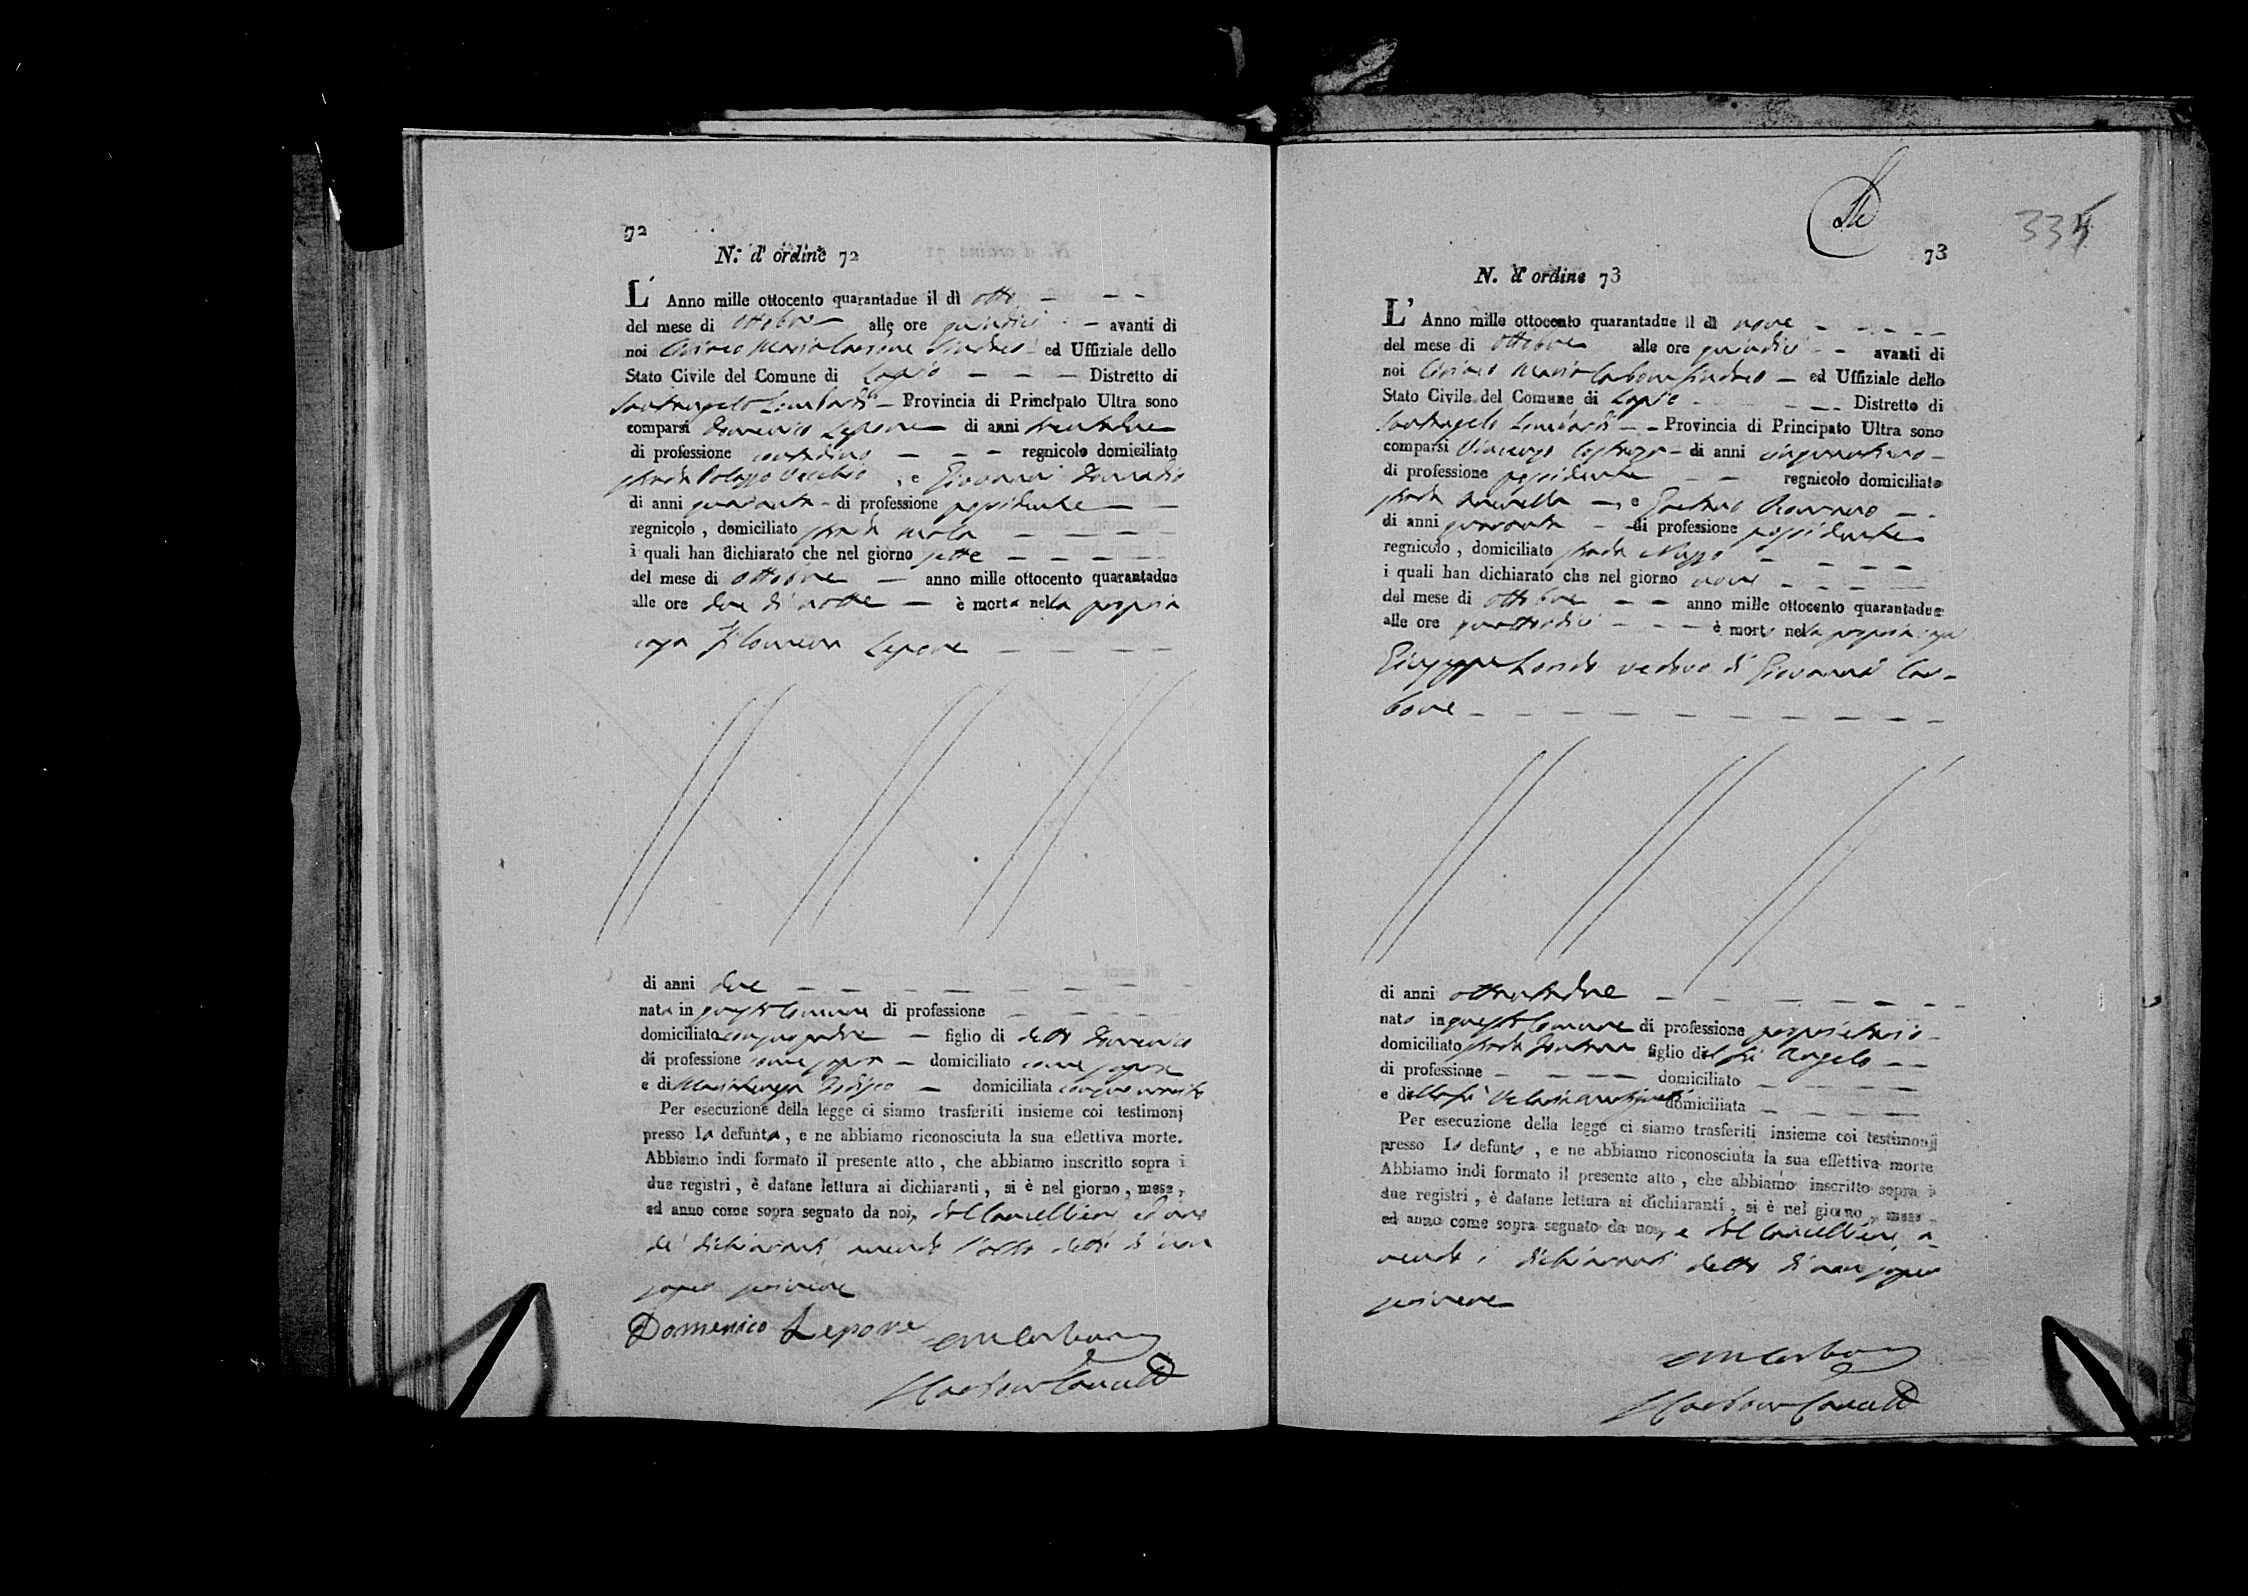 72
N.° d' ordine 72
L' Anno mille ottocento quarantadue il dì otto
del mese di Ottobre alle ore quindici avanti di
noi Ciriaco Maria Carbone Sindaco ed Uffiziale dello
Stato Civile del Comune di Lapio Distretto di
Santangelo Lombardi Provincia di Principato Ultra sono
comparsi Domenico Lepore di anni trentadue
di professione contadino regnicolo domiciliato
strada Palazzo Vecchio, e Giovanni Donnatio
di anni quaranta di professione possidente
regnicolo, domiciliato strada
i quali han dichiarato che nel giorno sette
del mese di Ottobre anno mille ottocento quarantadue
alle ore due di notte è morta nella propria
casa Filomena Lepore
di anni due
nata in questo Comune di professione
domiciliata con suo padre figlio di detto Domenico
di professione come sopra domiciliato come sopra
e di Mariateresa domiciliata con suo marito
Per esecuzione della legge ci siamo trasferiti insieme coi testimonj
presso la defunta, e ne abbiamo riconosciuta la sua effettiva morte.
Abbiamo indi formato il presente atto, che abbiamo inscritto sopra i
due registri, è datane lettura ai dichiaranti, si è nel giorno, mese,
ed anno come sopra segnato da noi, dal Cancelliere ed uno
de' dichiaranti avendo l'altro detto di non
saper scrivere
Domenico Lepore CM Carbone
Carbone Cancell
334
73
N. d' ordine 73
L' Anno mille ottocento quarantadue il dì nove
del mese di Ottobre alle ore quindici avanti di
noi Ciriaco Maria Carbone Sindaco ed Uffiziale dello
Stato Civile del Comune di Lapio Distretto di
Santangelo Lombardi Provincia di Principato Ultra sono
comparsi Vincenzo di anni cinquantuno
di professione possidente regnicolo domiciliato
strada e Gaetano Romano
di anni quaranta di professione possidente
regnicolo, domiciliato strada
i quali han dichiarato che nel giorno nove
del mese di Ottobre anno mille ottocento quarantadue
alle ore quattordici è morto nella propria casa
Giuseppe vedovo di Giovanna Car-
bone
di anni ottantadue
nato in questo Comune di professione proprietario
domiciliato strada Fontana figlio del fu Angelo
di professione domiciliato
e della fu domiciliata
Per esecuzione della legge ci siamo trasferiti insieme coi testimonj
presso lo defunto, e ne abbiamo riconosciuta la sua effettiva morte
Abbiamo indi formato il presente atto, che abbiamo inscritto sopra i
due registri, è datane lettura ai dichiaranti, si è nel giorno, mese
ed anno come sopra segnato da noi, e dal Cancelliere, a-
vendo i dichiaranti detto di non saper
scrivere
CM Carbone
Carbone Cancell